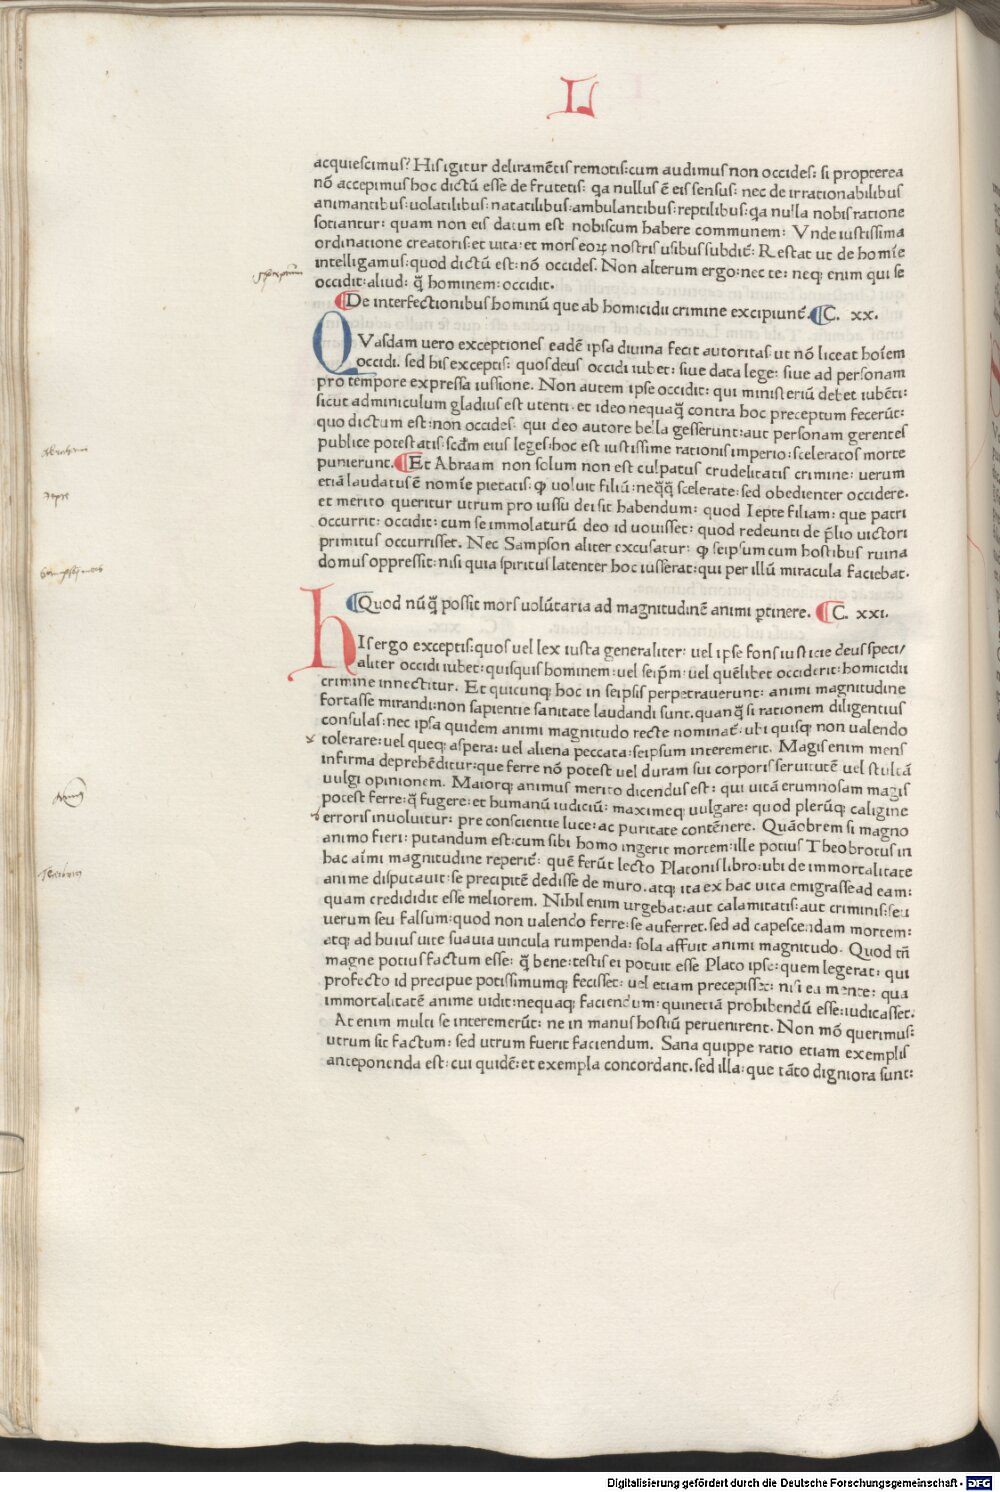 L
acquiescimus? His igitur deliramẽtis remotis: cum audimus non occides: si propterea
nõ accepimus hoc dictũ esse de frutetis: qa nullus ẽ eis sensus: nec de irrationabilibus
animantibus: uolatilibus: natatilibus: ambulantibus: reptilibus: qa nulla nobis ratione
sotiantur: quam non eis datum est nobiscum habere communem: Vnde iustissima
ordinatione creatoris: et uita: et mors eoꝝ nostris usibus subdit̃: Restat ut de homĩe
intelligamus: quod dictũ est: nõ occides. Non alterum ergo: nec te: neqꝫ enim qui se
occidit: aliud: q̃ hominem: occidit.
De interfectionibus hominũ que ab homicidii crimine excipiunt̃. C. xx.
QVasdam uero exceptiones eadẽ ipsa diuina fecit autoritas. ut nõ liceat hoĩem
occidi. sed his exceptis: quos deus occidi iubet: siue data lege: siue ad personam
pro tempore expressa iussione. Non autem ipse occidit: qui ministeriũ debet iubẽti:
sicut adminiculum gladius est utenti. et ideo nequaq̃ contra hoc preceptum fecerũt:
quo dictum est: non occides. qui deo autore bella gesserunt: aut personam gerentes
publice potestatis: scd̃m eius leges: hoc est iustissime rationis imperio: sceleratos morte
punierunt. Et Abraam non solum non est culpatus crudelitatis crimine: uerum
etiã laudatus ẽ nomĩe pietatis: ꝙ uoluit filiũ: neq̃q̃ scelerate: sed obedienter occidere.
et merito queritur utrum pro iussu dei sit habendum: quod Iepte filiam: que patri
occurrit: occidit: cum se immolaturũ deo id uouisset: quod redeunti de p̃lio uictori
primitus occurrisset. Nec Sampson aliter excusatur: ꝙ seipsum cum hostibus ruina
domus oppressit: nisi quia spiritus latenter hoc iusserat: qui per illũ miracula faciebat.
Quod nũq̃ possit mors uolũtaria ad magnitudinẽ animi ꝑtinere. C. xxi.
hIs ergo exceptis: quos uel lex iusta generaliter: uel ipse fons iusticie deus speci/
aliter occidi iubet: quisquis hominem: uel seip̃m: uel quẽlibet occiderit: homicidii
crimine innectitur. Et quicunqꝫ hoc in seipsis perpetrauerunt: animi magnitudine
fortasse mirandi: non sapientie sanitate laudandi sunt. quanq̃ si rationem diligentius
consulas: nec ipsa quidem animi magnitudo recte nominat̃: ubi quisqꝫ non ualendo
tolerare: uel queqꝫ aspera: uel aliena peccata: seipsum interemerit. Magis enim mens
infirma deprehẽditur: que ferre nõ potest uel duram sui corporis seruitutẽ uel stultã
uulgi opinionem. Maiorqꝫ animus merito dicendus est: qui uitã erumnosam magis
potest ferre: q̃ fugere: et humanũ iudiciũ: maximeqꝫ uulgare: quod plerũqꝫ caligine
erroris inuoluitur: pre conscientie luce: ac puritate contẽnere. Quãobrem si magno
animo fieri: putandum est: cum sibi homo ingerit mortem: ille potius Theobrotus in
hac aĩmi magnitudine reperit̃: quẽ ferũt lecto Platonis libro: ubi de immortalitate
anime disputauit: se precipitẽ dedisse de muro. atqꝫ ita ex hac uita emigrasse ad eam:
quam credididit esse meliorem. Nihil enim urgebat: aut calamitatis: aut criminis: seu
uerum seu falsum: quod non ualendo ferre: se auferret. sed ad capescendam mortem:
atqꝫ ad huius uite suauia uincula rumpenda: sola affuit animi magnitudo. Quod tñ
magne potius factum esse: q̃ bene: testis ei potuit esse Plato ipse: quem legerat: qui
profecto id precipue potissimumqꝫ fecisset: uel etiam precepisset: nisi ea mente: qua
immortalitatẽ anime uidit: nequaqꝫ faciendum: quinetiã prohibendũ esse: iudicasset.
At enim multi se interemerũt: ne in manus hostiũ peruenirent. Non mõ querimus:
utrum sit factum: sed utrum fuerit faciendum. Sana quippe ratio etiam exemplis
anteponenda est: cui quidẽ: et exempla concordant. sed illa: que tãto digniora sunt:
Abraham
Iepte
Digitalisierung gefördert durch die Deutsche Forschungsgemeinschaft - DFG